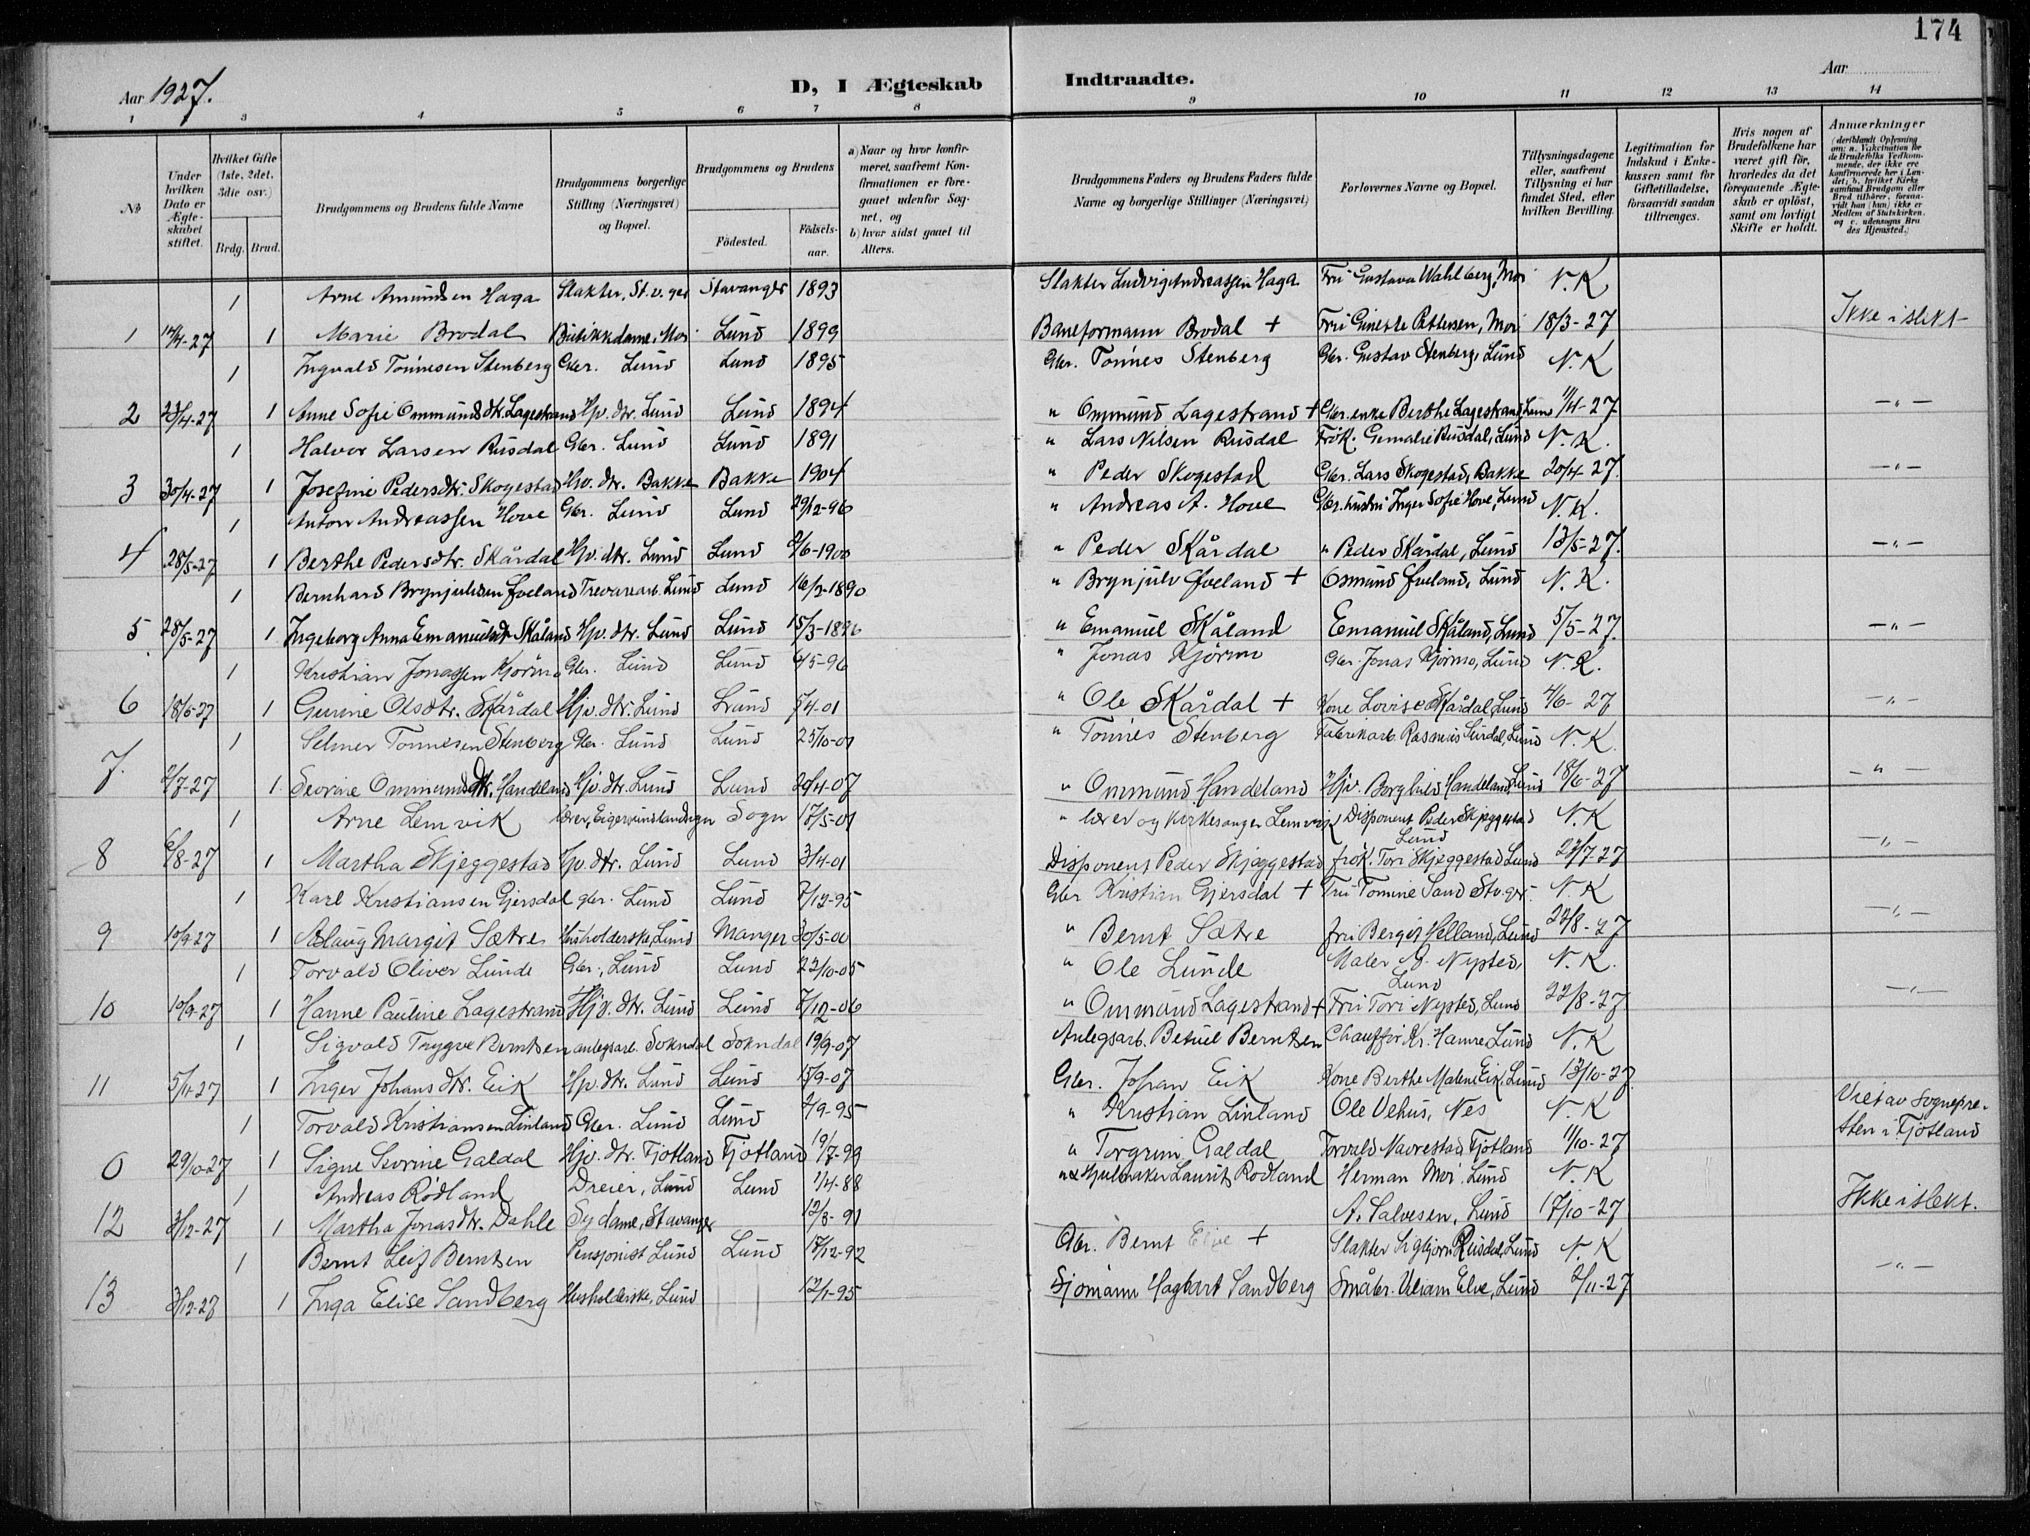 174
Aar 1927.
D, I Ægteskab Indtraadte.
Aar
1 3 4 5 6 7 8 9 10 11 12 13 14
No.
Under hvilken Dato er Ægteskabet stiftet.
Hvilket Gifte (1ste, 2det, 3die osv.)
Brdg. Brud.
Brudgommens og Brudens fulde Navne
Brudgommens borgerlige Stilling (Næringsvei) og Bopæl.
Brudgommens og Brudens
Födested. Födselsaar.
a) Naar og hvor konfirmeret, saafremt Konfirmationen er foregaaet udenfor Sognet, og
b) hvor sidst gaaet til Alters.
Brudgommens Faders og Brudens Faders fulde Navne og borgerlige Stillinger (Næringsvei)
Forlovernes Navne og Bopæl.
Tillysningsdagene eller, saafremt Tillysning ei har fundet Sted, efter hvilken Bevilling.
Legitimation for Indskud i Enkekassen samt for Giftetilladelse, forsaavidt saadan tiltrænges.
Hvis nogen af Brudefolkene har været gift för, hvorledes da det foregaaende Ægteskab er oplöst, samt om lovligt Skifte er holdt.
Anmærkninger (deriblandt Oplysning om: a. Vakcination for de Brudefolks Vedkommende, der ikke ere konfirmerede her i Landet; b. hvilket Kirkesamfund Brudgom eller Brud tilhörer, forsaavidt han (hun) ikke er Medlem af Statskirken, og c. udensogns Brudes Hjemsted.)
1 Arne Amundsen Haga Slakter, St.v.ger Stavanger 1893 Slakter Ludvig Andreassen Haga Fru Gustava Wahlberg, Moi N. K
1 14/4-27 1 Marie Brodal Butikkdame, Moi Lund 1899 Baneformann Brodal + Fru Pettersen, Moi 18/3-27 Ikke i slekt
1 Ingvald Tönnesen Stenberg Gbr. Lund Lund 1895 Gbr. Tönnes Stenberg Gbr. Gustav Stenberg, Lund N. K
2 23/4-27 1 Anne Sofie Ommundsdtr. Lagestrand Hjv. dtr. Lund Lund 1894 " Ommund Lagestrand + Gbr. enke Berthe Lagestrand Lund 1/4-27 -"-
1 Halvor Larsen Rusdal Gbr. Lund Lund 1891 " Lars Nilsen Rusdal Frök. Rusdal, Lund N. K.
3 30/4-27 1 Josefine Pedersdtr. Skogestad Hjv. dtr. Bakke Bakke 1904 " Peder Skogestad Gbr. Lars Skogestad, Bakke 20/4-27. -"-
1 Anton Andreassen Hove Gbr. Lund Lund 29/12-96 " Andreas A. Hove Gbr. hustru Inger Sofie Hove, Lund N. K.
4 28/5-27 1 Berthe Pedersdtr. Skårdal Hjv. dtr. Lund Lund 2/6-1900 " Peder Skårdal " Peder Skårdal, Lund 13/5-27. -"-
1 Bernhard Brynjulvsen Eveland Trevarearb. Lund Lund 16/3-1890 " Brynjulv Eveland + Osmund Eveland, Lund N. K.
5 28/5-27 1 Ingeborg Anna Emanuelsdtr Skåland Hjv. dtr. Lund Lund 15/3-1896 " Emanuel Skåland Emanuel Skåland, Lund 5/5-27. -"-
1 Kristian Jonassen Kjörmo Gbr. Lund Lund 6/5-96 " Jonas Kjörmo Gbr. Jonas Kjörmo, Lund N. K.
6 18/6-27 1 Gurine Olsdtr. Skårdal Hjv. dtr. Lund Lund 5/4-01 " Ole Skårdal + Kone Lovise Skårdal Lund 4/6-27 -"-
1 Selmer Tönnesen Stenberg Gbr. Lund Lund 25/10-01 " Tönnes Stenberg Fabrikarb. Rasmus Surdal, Lund N. K.
7. 2/7-27 1 Sevrine Ommundsdtr. Handeland Hjv. dtr. Lund Lund 20/4-07 " Ommund Handeland Hjv. Borghild Handeland, Lund 18/6-27 -"-
1 Arne Lemvik lærer, Eigersundslandsogn Sogn 17/5-01 " lærer og kirkesanger Lemvik Disponent Peder Skjeggestad Lund N. K
8 6/8-27 1 Martha Skjeggestad Hjv. dtr. Lund Lund 3/4-01 Disponent Peder Skjeggestad frök. Tori Skjeggestad Lund 22/7-27 -"-
1 Karl Kristiansen Gjersdal gbr. Lund Lund 7/12-95 Gbr Kristian Gjersdal + Fru Tomine Sand Stv.ger. N. K
9 10/9-27 1 Aslaug Margit Sætre Husholderske, Lund Manger 30/5-00 " Bernt Sætre fru Bergit Helland, Lund 22/8-27 -"-
1 Torvald Oliver Lunde Gbr., Lund Lund 22/10-05 " Ole Lunde Maler Nysted, Lund N. K.
10 10/9-27 1 Hanne Pauline Lagestrand Hjv. dtr. Lund Lund 7/12-06 " Ommund Lagestrand + Fru Tori Nysted, Lund 22/8-27. -"-
1 Sigvald Trygve Berntsen anlegsarb. Sokndal Sokndal 19/9-07 Anlegsarb. Betuel Berntsen Chaufför Kr. Hamre Lund N. K
11 5/11-27 1 Inger Johansdtr. Eik Hjv. dtr. Lund Lund 15/9-07 Gbr. Johan Eik Kone Berthe Malene Eik, Lund 13/10-27.
1 Torvald Kristiansen Linland Gbr. Lund Lund 2/9-95 " Kristian Linland Ole Vehus, Nes N. K Viet av Sognepresten i Fjotland
0 29/10-27 1 Signe Sevrine Galdal Hjv. dtr. Fjotland Fjotland 19/7-99 " Torgrim Galdal Torvald Navrestad, Fjotland 11/10-27
1 Andreas Rödland Dreier, Lund Lund 1/4-88 Hjulmaker Laurits Rodland Herman Moi Lund N. K
12 3/12-27 1 Martha Jonasdtr. Dahle Sydame, Stavanger 12/3-91 A. Salvesen, Lund 17/10-27 Ikke i slekt.
1 Bernt Leif Berntsen Pensjonist Lund Lund 17/12-92 Gbr. Bernt Eive + Slakter Sigbjörn Rusdal, Lund N. K
13 3/12-27 1 Inga Elise Sandberg Husholderske, Lund 12/1-95 Sjömann Hagbart Sandberg Småbr. Viliam Elve, Lund 2/11-27 -"-